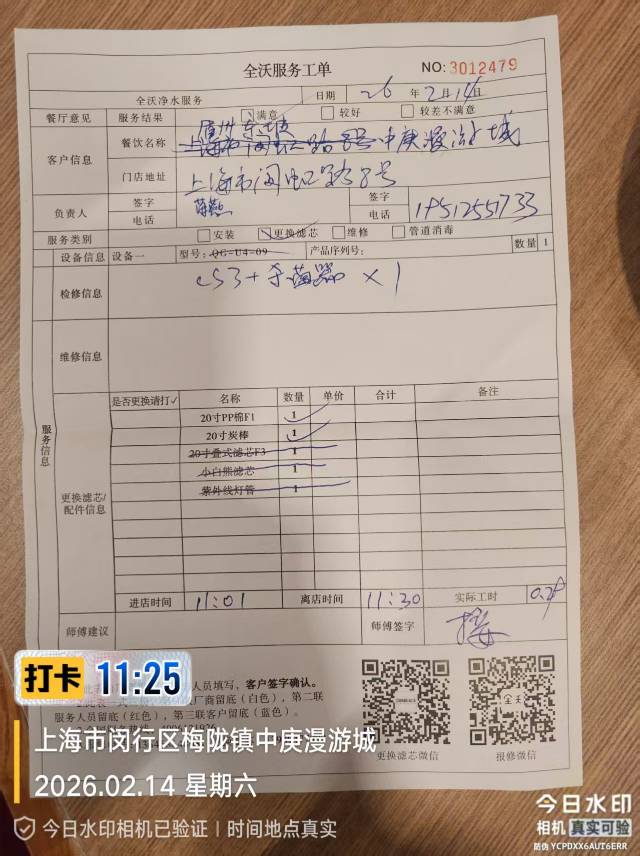 全沃服务工单
NO: 3012479
全沃净水服务 日期 26 年 2 月 14 日
餐厅意见 服务结果 满意 较好 较差不满意
客户信息 餐饮名称 上海市闵虹路8号中庚漫游城
门店地址 上海市闵虹路8号
负责人 签字 签字
电话 电话
服务类别 安装 更换滤芯 维修 管道消毒
设备信息 设备一 型号: QG-U4-09 产品序列号: 数量 1
检修信息 CS3+杀菌器 ×1
维修信息
服务信息
更换滤芯/配件信息
是否更换请打✓ 名称 数量 单价 合计 备注
20寸PP棉F1 1
20寸炭棒 1
20寸叠式滤芯F3 1
小白熊滤芯 1
紫外线灯管 1
进店时间 11:01 离店时间 11:30 实际工时
师傅建议 师傅签字
人员填写,客户签字确认。
厂商留底(白色),第二联
服务人员留底(红色),第三联客户留底(蓝色)。
更换滤芯微信 报修微信
打卡 11:25
上海市闵行区梅陇镇中庚漫游城
2026.02.14 星期六
今日水印相机已验证 | 时间地点真实
今日水印
相机 真实可验
防伪 YCPDXX6AUT6ERR